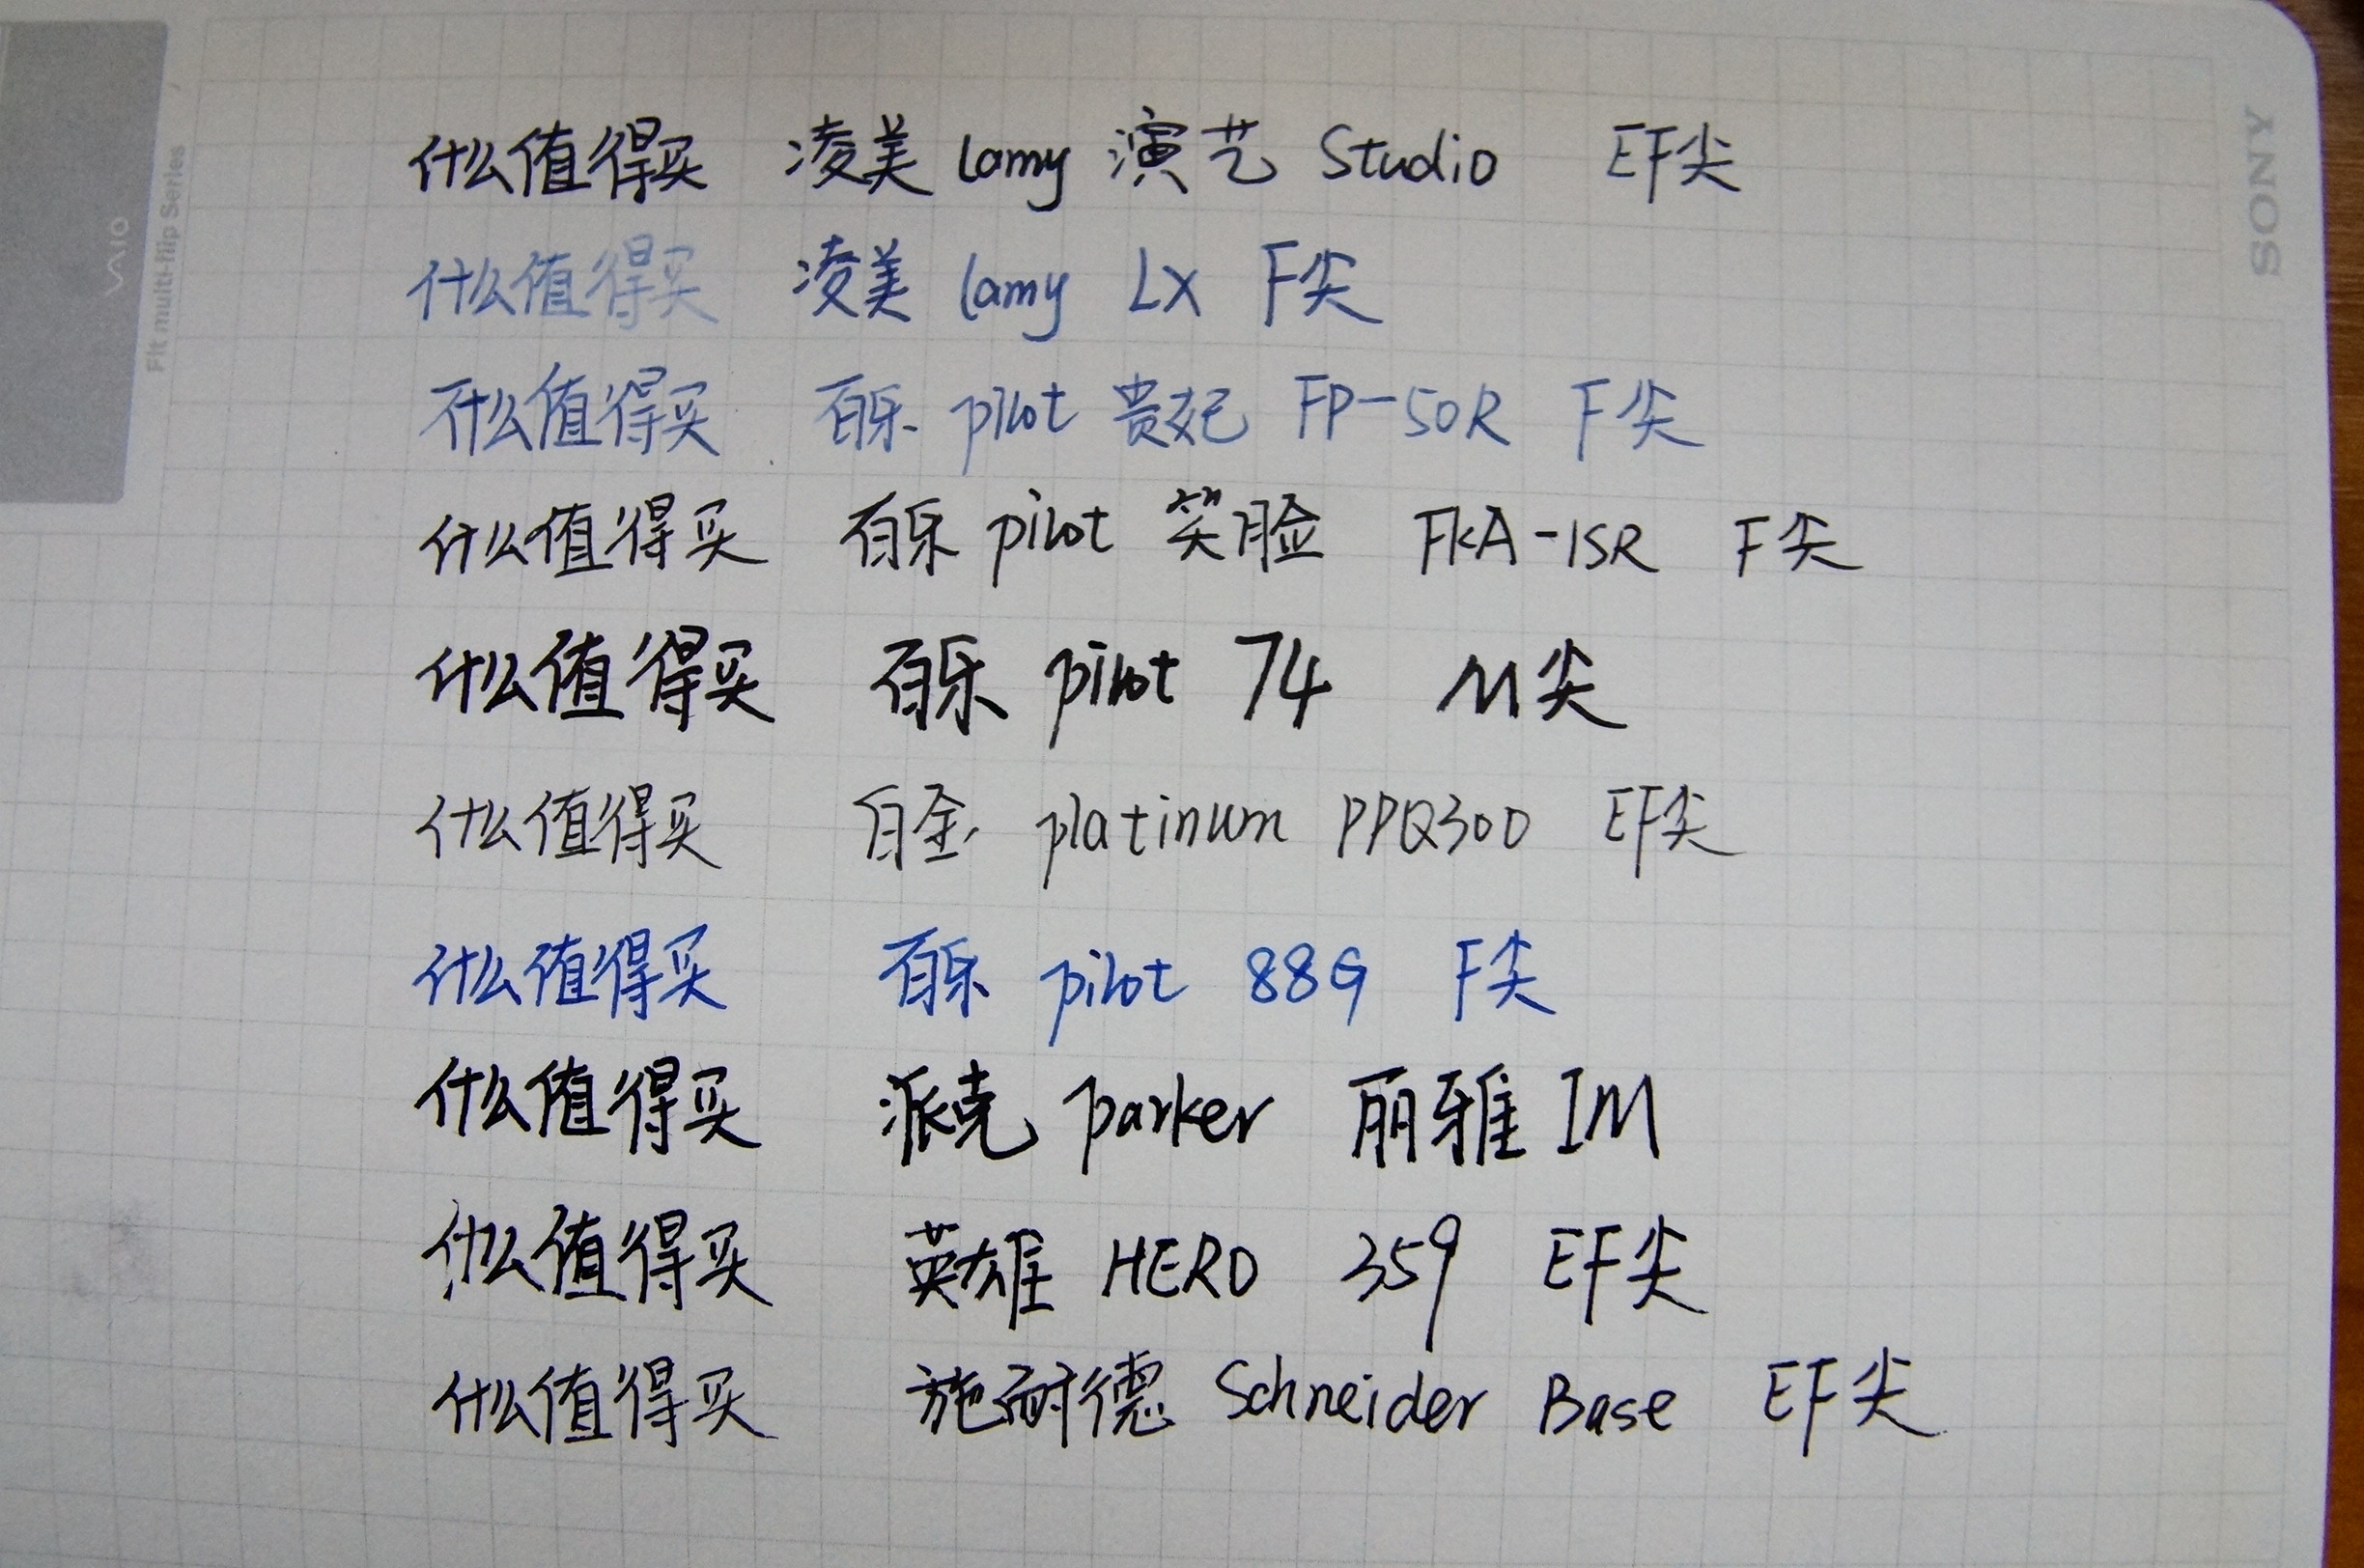 什么值得买 凌美 lamy 演艺 Studio EF尖
什么值得买 凌美 lamy LX F尖
什么值得买 百乐 pilot 贵妃 FP-50R F尖
什么值得买 百乐 pilot 笑脸 FKA-1SR F尖
什么值得买 百乐 pilot 74 M尖
什么值得买 白金 platinum PPQ300 EF尖
什么值得买 百乐 pilot 88G F尖
什么值得买 派克 parker 丽雅 IM
什么值得买 英雄 HERO 359 EF尖
什么值得买 施耐德 Schneider Base EF尖
SONY
VAIO
Fit multi-flip Series